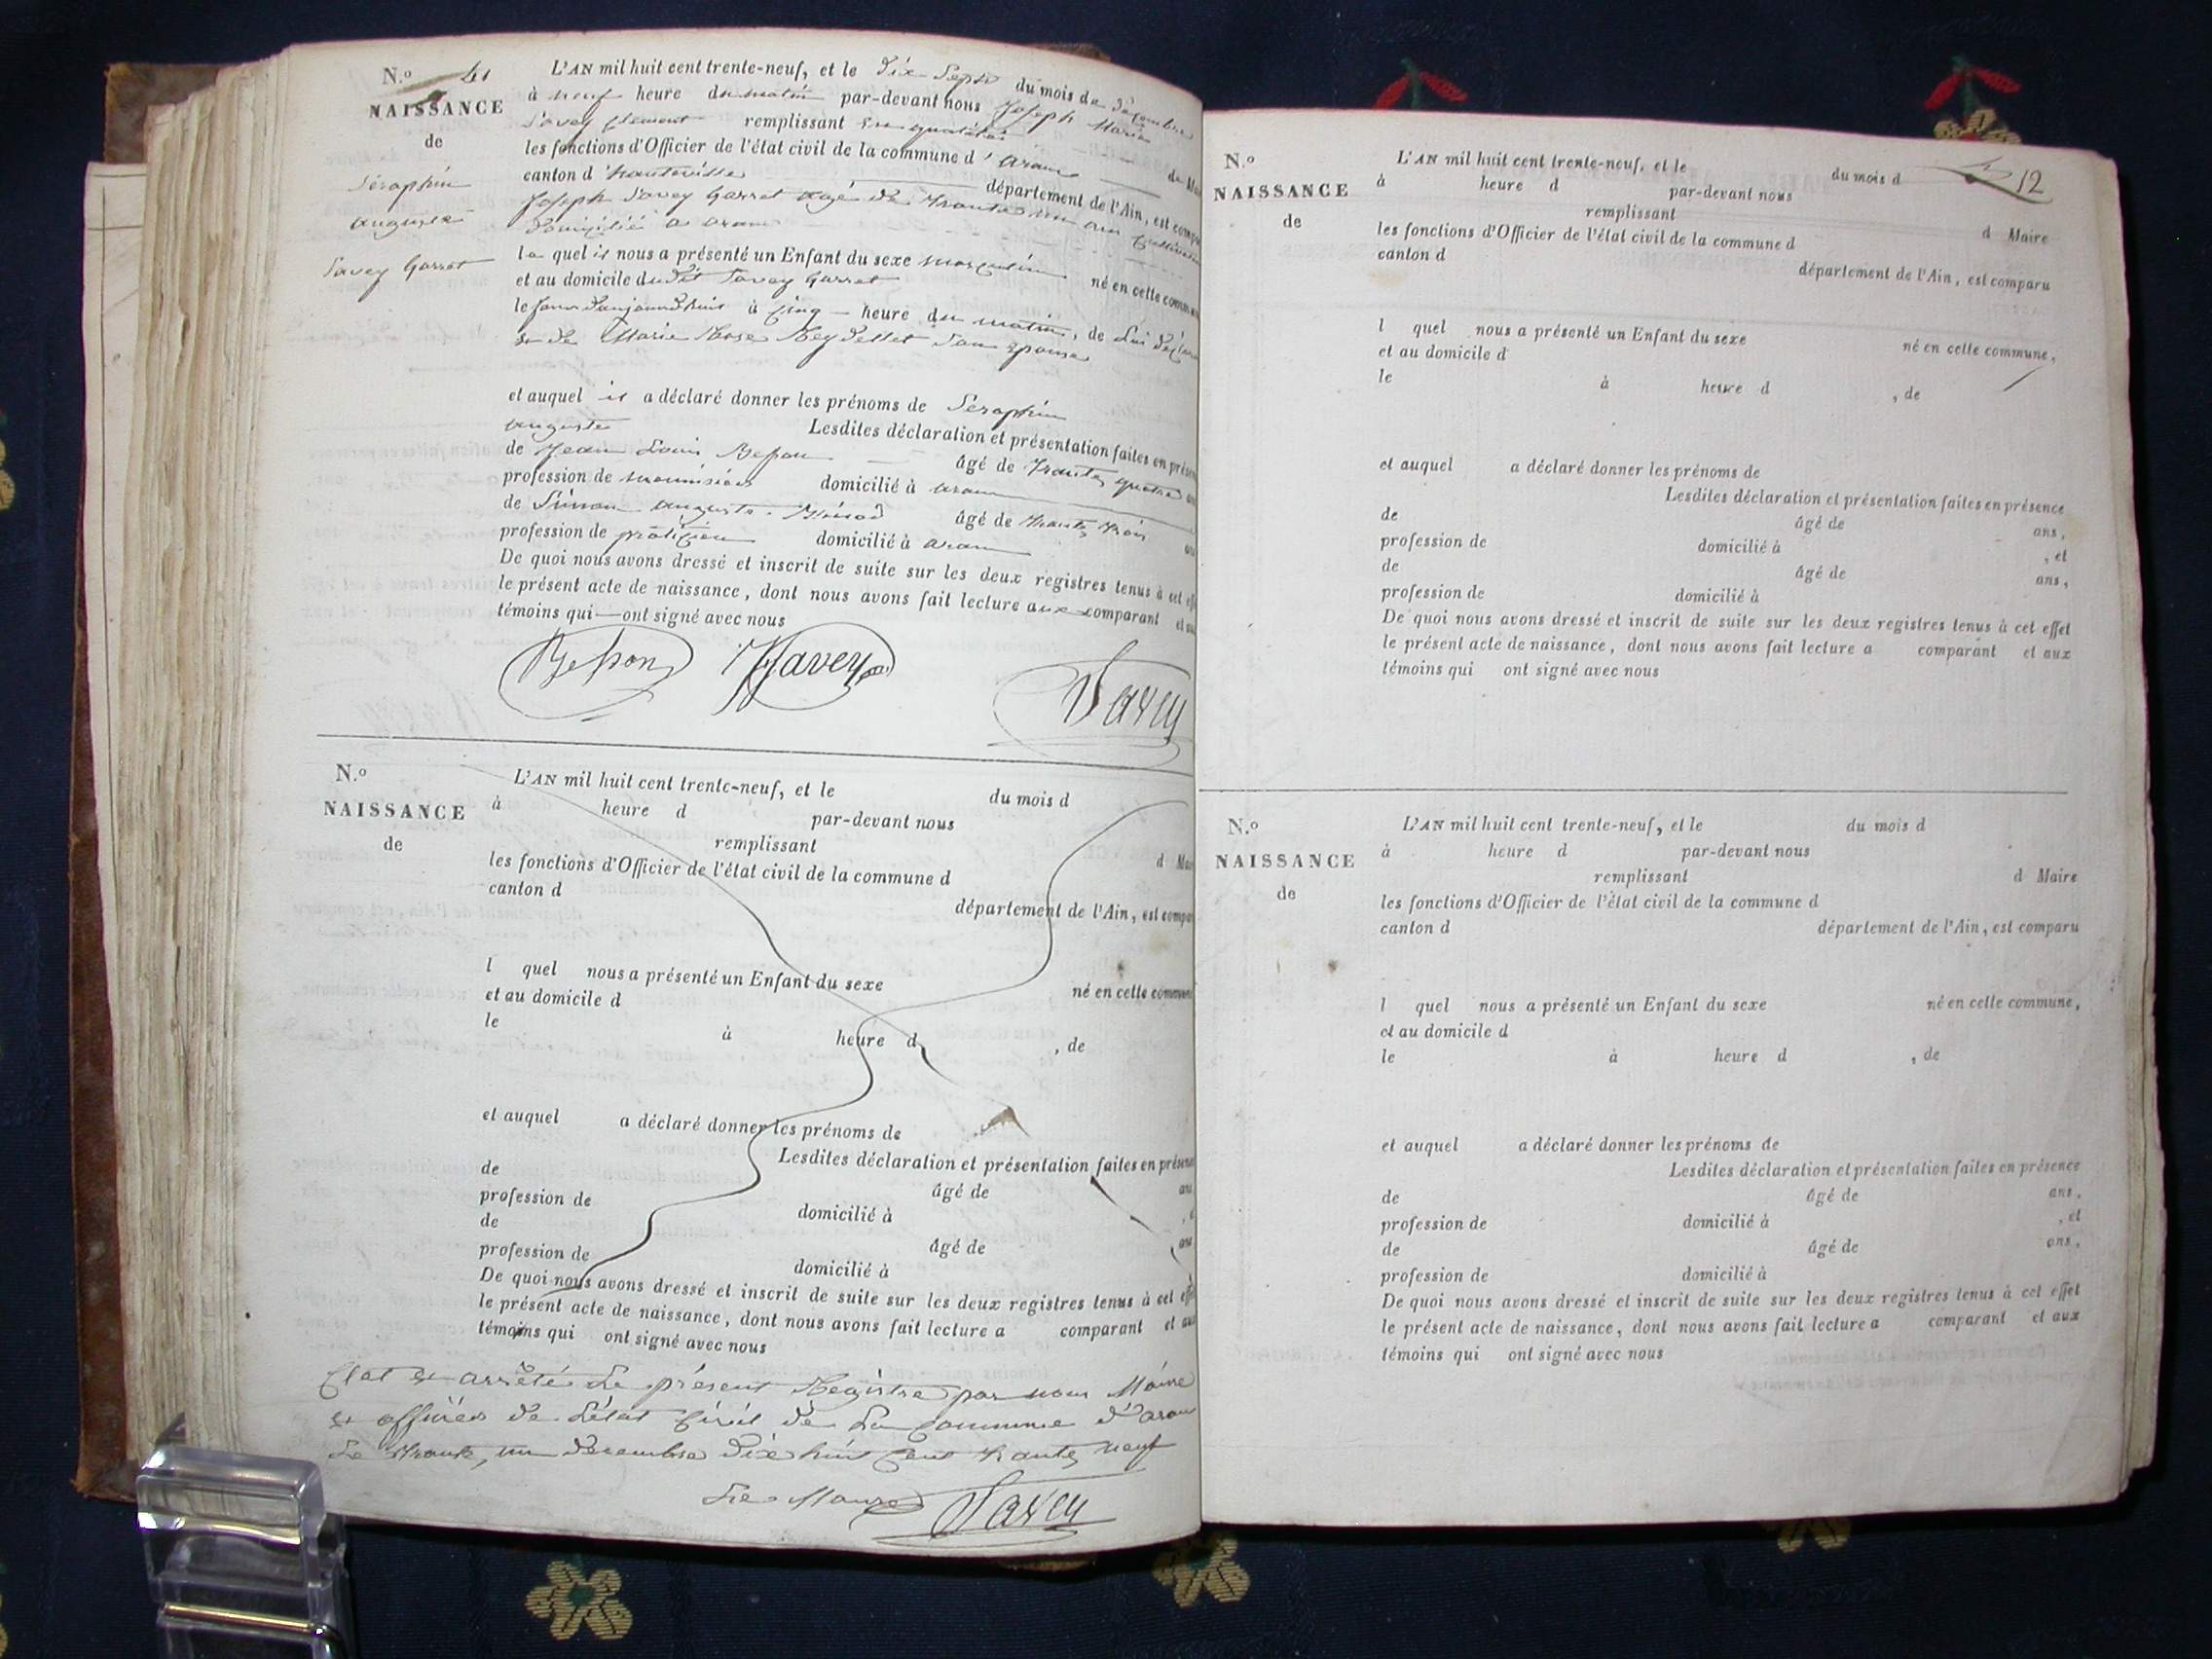 N.º 41
NAISSANCE
de
Séraphin
auguste
Savey Garret
L'AN mil huit cent trente-neuf, et le dix Sept du mois de Decembre
à neuf heure du matin par-devant nous Joseph Marie
Savey Clément remplissant en qualité de Mai
les fonctions d'Officier de l'état civil de la commune d'aranc
canton d'hauteville département de l'Ain, est compa
Joseph Savey Garret agé de trante un ans Cultivateur
Domicilié a aranc
le quel il nous a présenté un Enfant du sexe masculin né en cette commune
et au domicile dudit Savey Garret
le jour d'aujourdhuit à Cinq heure du matin, de Lui déclarant
et de Marie Rose Reydellet Son Epouse
et auquel il a déclaré donner les prénoms de Séraphin
auguste Lesdites déclaration et présentation faites en présen
de Jean Louis Besson âgé de trante quatre ans
profession de menuisier domicilié à aranc
de Simon auguste âgé de trante trois an
profession de praticien domicilié à aranc
De quoi nous avons dressé et inscrit de suite sur les deux registres tenus à cet eff
le présent acte de naissance, dont nous avons fait lecture aux comparant et au
témoins qui ont signé avec nous
Besson Savey Savey
N.º
NAISSANCE
de
L'AN mil huit cent trente-neuf, et le du mois d
à heure d par-devant nous
remplissant d Mai
les fonctions d'Officier de l'état civil de la commune d
canton d département de l'Ain, est compa
l quel nous a présenté un Enfant du sexe né en cette commune
et au domicile d
le à heure d , de
et auquel a déclaré donner les prénoms de
Lesdites déclaration et présentation faites en présen
de âgé de ans
profession de domicilié à , e
de âgé de ans
profession de domicilié à
De quoi nous avons dressé et inscrit de suite sur les deux registres tenus à cet effe
le présent acte de naissance, dont nous avons fait lecture a comparant et aux
témoins qui ont signé avec nous
Clot et arrêté Le présent Registre par nous Maire
et officier de L'état Civil de La Commune d'aranc
Le trante, un decembre dix huit Cent trante neuf
Le Maire Savey
12
N.º
NAISSANCE
de
L'AN mil huit cent trente-neuf, et le du mois d
à heure d par-devant nous
remplissant d Maire
les fonctions d'Officier de l'état civil de la commune d
canton d département de l'Ain, est comparu
l quel nous a présenté un Enfant du sexe né en cette commune,
et au domicile d
le à heure d , de
et auquel a déclaré donner les prénoms de
Lesdites déclaration et présentation faites en présence
de âgé de ans,
profession de domicilié à , et
de âgé de ans,
profession de domicilié à
De quoi nous avons dressé et inscrit de suite sur les deux registres tenus à cet effet
le présent acte de naissance, dont nous avons fait lecture a comparant et aux
témoins qui ont signé avec nous
N.º
NAISSANCE
de
L'AN mil huit cent trente-neuf, et le du mois d
à heure d par-devant nous
remplissant d Maire
les fonctions d'Officier de l'état civil de la commune d
canton d département de l'Ain, est comparu
l quel nous a présenté un Enfant du sexe né en cette commune,
et au domicile d
le à heure d , de
et auquel a déclaré donner les prénoms de
Lesdites déclaration et présentation faites en présence
de âgé de ans,
profession de domicilié à , et
de âgé de ans,
profession de domicilié à
De quoi nous avons dressé et inscrit de suite sur les deux registres tenus à cet effet
le présent acte de naissance, dont nous avons fait lecture a comparant et aux
témoins qui ont signé avec nous